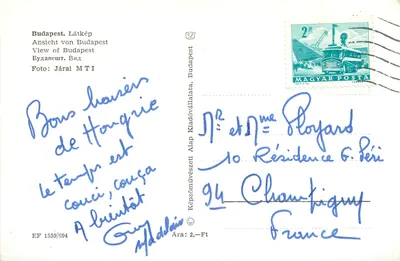 Budapest. Látkép
Ansicht von Budapest
View of Budapest
Будапешт. Вид
Foto: Járai MTI
Bons baisers
de Hongrie
Le temps est
couci, couça
A bientôt
Guy
EF 1539/694
Ára: 2.-Ft
Képzőművészeti Alap Kiadóvállalata, Budapest
2 Ft
MAGYAR POSTA
Mr et Mme Ployard
10 Résidence G. Péri
94 Champigny
France